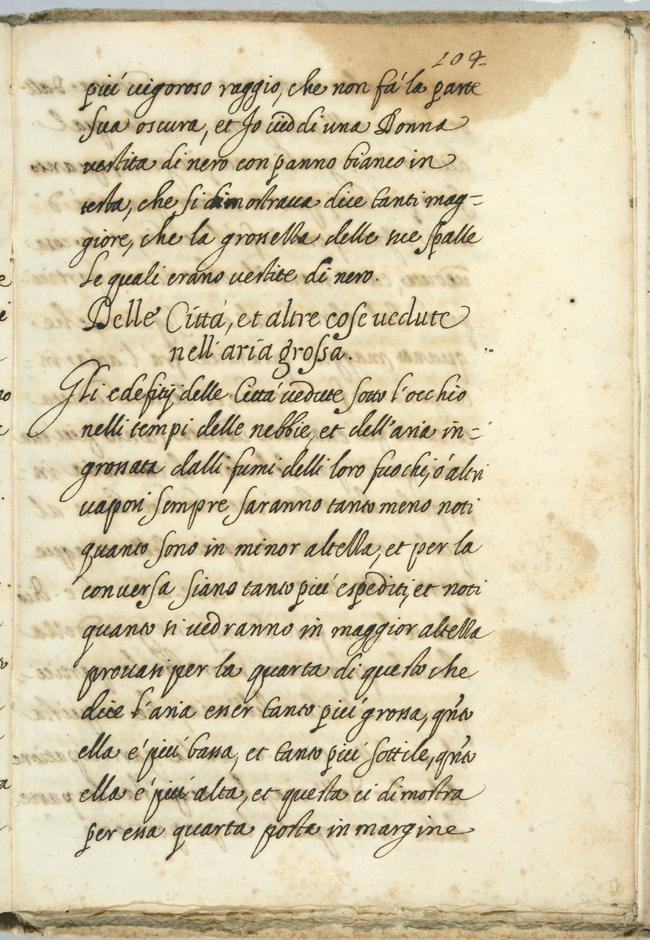 104.
piú uigoroso raggio, che non fá la parte
sua oscura, et Io uiddi una Donna
uestita di nero con panno bianco in
testa, che si dimostraua dice tanti mag=
giore, che la grossezza delle sue spalle
le quali erano uestite di nero.
Delle Cittá, et altre cose uedute
nell'aria grossa.
Gli edefitij delle Cittá uedute sotto l'occhio
nelli tempi delle nebbie, et dell'aria in=
grossata dalli fumi delli loro fuochi, ó altri
uapori sempre saranno tanto meno noti
quanto sono in minor altezza, et per la
conuersa siano tanto piú espediti, et noti
quanto si uedranno in maggior altezza
prouasi per la quarta di questo che
dice l'aria esser tanto piú grossa, qnto
ella é piú bassa, et tanto piú sottile, qnto
ella é piú alta, et questa ci dimostra
per essa quarta posta in margine